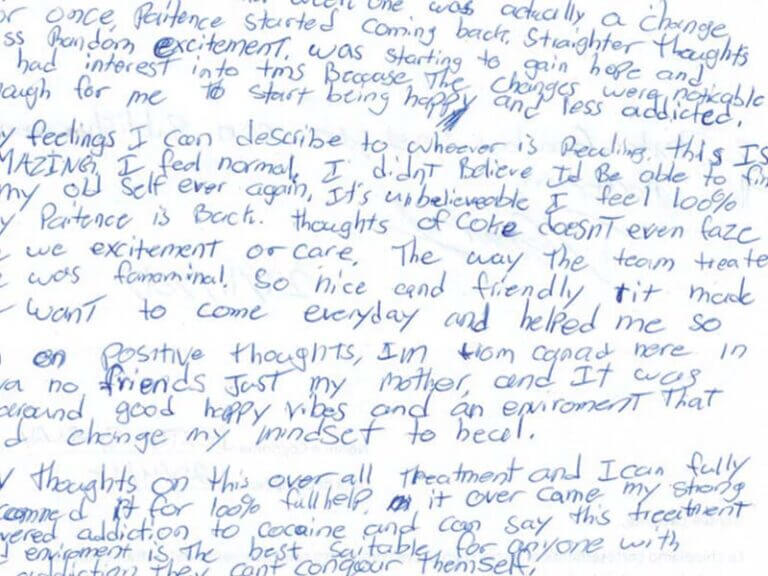 one was actually a change
once, Paitence started coming back. Straighter thoughts
Random excitement, was starting to gain hope and
had interest into tms Because The changes were noticable
for me to start being happy and less addicted.
feelings I can describe to whoever is Reading. this IS
I feel normal, I didnt Believe Id Be able to
my old Self ever again, It's unbelieveable I feel 100%
Paitence is Back. thoughts of Coke doesnt even faze
we excitement or care. The way The team
was fanaminal. So nice and friendly it made
want to come everyday and helped me so
on positive thoughts, Im here in
no friends Just my mother, and IT was
around good happy vibes and an enviroment That
change my mindset to heal.
thoughts on this over all Treatment and I can fully
it for 100% full help. it over came my strong
addiction to cocaine and can say this treatment
enviroment is The best suitable for anyone with
addiction They cant conquour Themself.